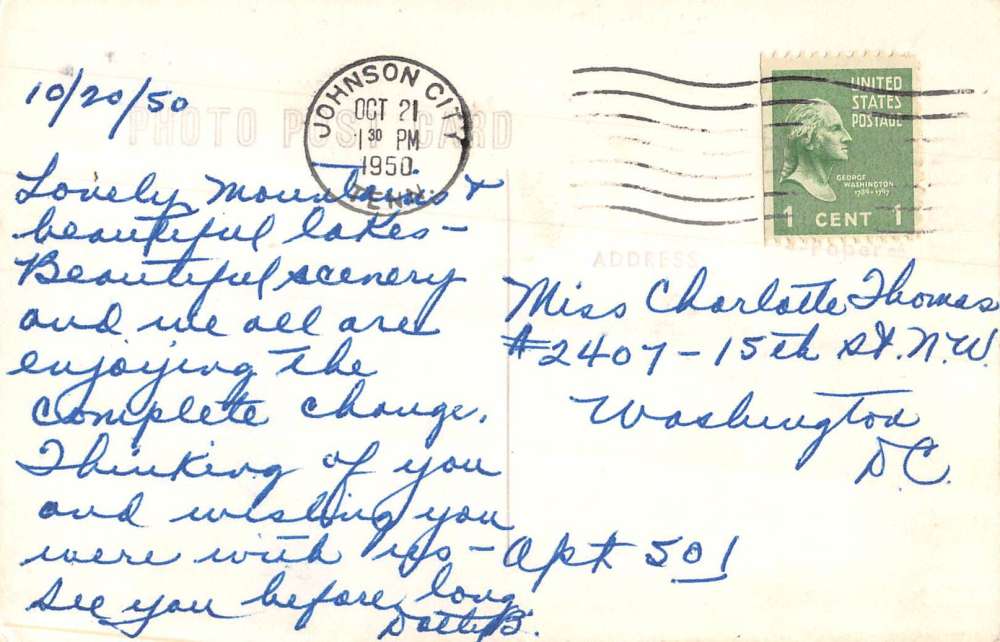 10/20/50
PHOTO POST CARD
JOHNSON CITY
OCT 21
1 30 PM
1950
TENN.
UNITED
STATES
POSTAGE
GEORGE
WASHINGTON
1789-1797
1 CENT 1
Lovely Mountains &
beautiful lakes -
Beautiful scenery
and we all are
enjoying the
complete change.
Thinking of you
and wishing you
were with us -
See you before long
Dottie B.
ADDRESS
Paper
Miss Charlotte Thomas
#2407 - 15th St. N.W.
Washington
D.C.
Apt 501